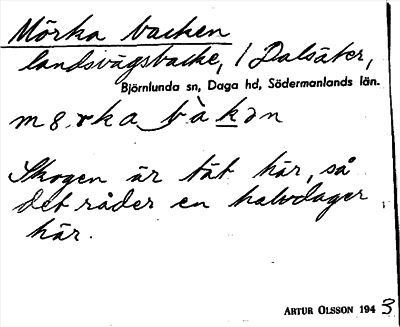 Mörka backen
landsvägsbacke, / Dalsäter,
Björnlunda sn, Daga hd, Södermanlands län.
Skogen är tät här, så
det råder en halvdager
här.
ARTUR OLSSON 1943